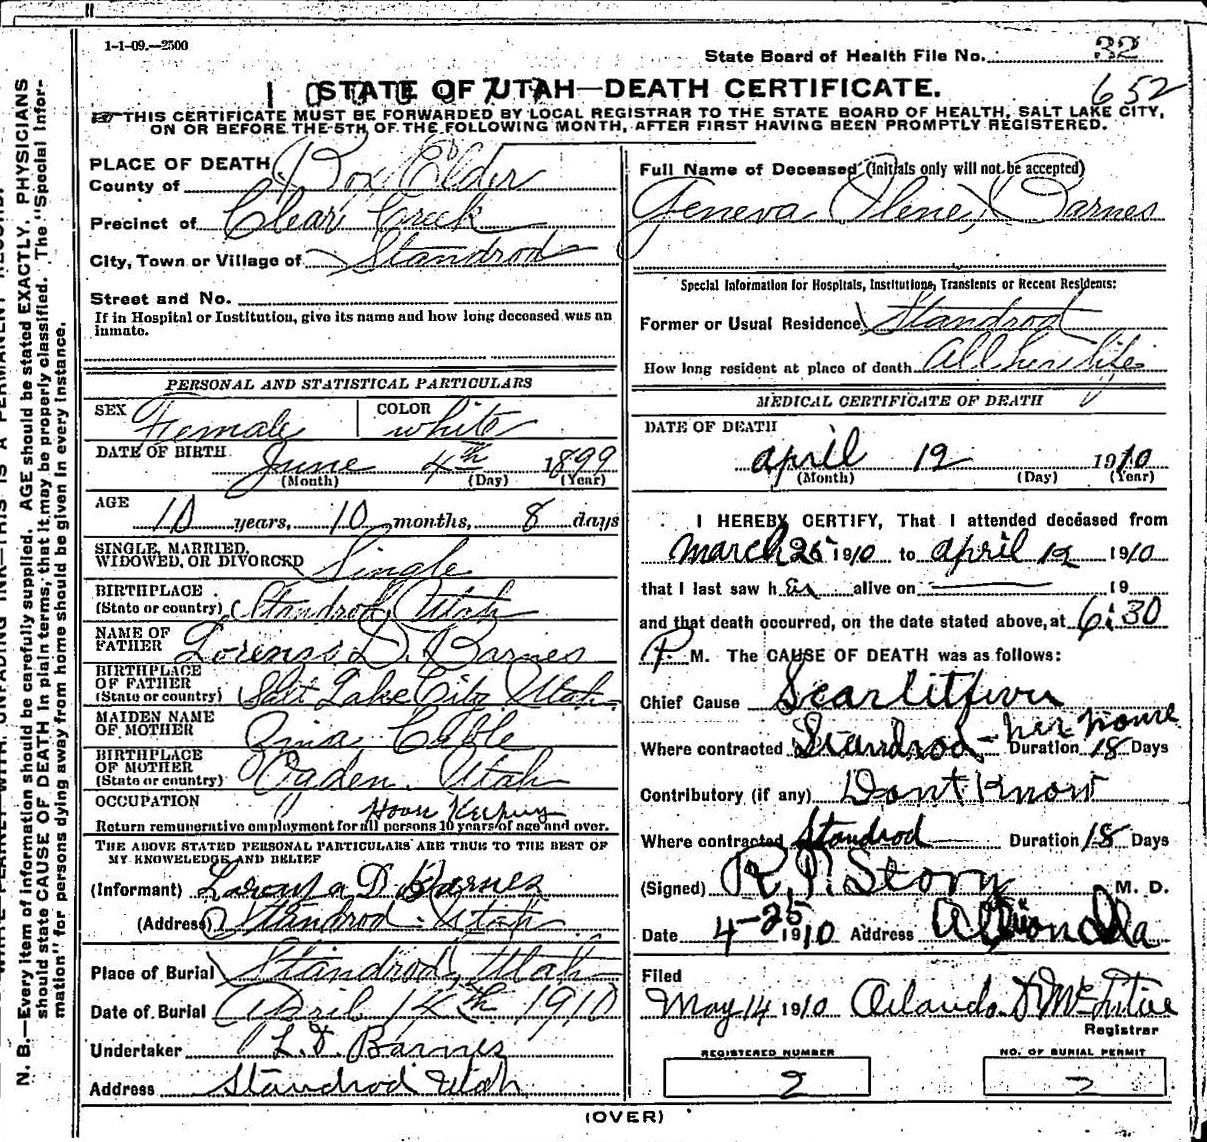 1-1-09.—2500
State Board of Health File No. 32
STATE OF UTAH—DEATH CERTIFICATE. 652
THIS CERTIFICATE MUST BE FORWARDED BY LOCAL REGISTRAR TO THE STATE BOARD OF HEALTH, SALT LAKE CITY,
ON OR BEFORE THE 5TH OF THE FOLLOWING MONTH, AFTER FIRST HAVING BEEN PROMPTLY REGISTERED.
PLACE OF DEATH
County of Box Elder
Precinct of Clear Creek
City, Town or Village of Standrod
Street and No.
If in Hospital or Institution, give its name and how long deceased was an
inmate.
PERSONAL AND STATISTICAL PARTICULARS
SEX Female COLOR white
DATE OF BIRTH June 4th 1899
(Month) (Day) (Year)
AGE 10 years, 10 months, 8 days
SINGLE, MARRIED,
WIDOWED, OR DIVORCED Single
BIRTHPLACE
(State or country) Standrod, Utah
NAME OF
FATHER Lorenso D. Barnes
BIRTHPLACE
OF FATHER
(State or country) Salt Lake City Utah
MAIDEN NAME
OF MOTHER Zina
BIRTHPLACE
OF MOTHER
(State or country) Ogden, Utah
OCCUPATION
Return remunerative employment for all persons 10 years of age and over.
THE ABOVE STATED PERSONAL PARTICULARS ARE TRUE TO THE BEST OF
MY KNOWELEDGE AND BELIEF
(Informant) D Barnes
(Address) Standrod - Utah
Place of Burial Standrod, Utah
Date of Burial April 14th 1910
Undertaker L. D. Barnes
Address Standrod Utah
Full Name of Deceased (Initials only will not be accepted)
Geneva Ilene Barnes
Special Information for Hospitals, Institutions, Transients or Recent Residents:
Former or Usual Residence Standrod
How long resident at place of death All her life
MEDICAL CERTIFICATE OF DEATH
DATE OF DEATH
april 12 1910
(Month) (Day) (Year)
I HEREBY CERTIFY, That I attended deceased from
March 26 1910 to april 12 1910
that I last saw h er alive on 19
and that death occurred, on the date stated above, at 6:30
P M. The CAUSE OF DEATH was as follows:
Chief Cause Scarlitfever
Where contracted Standrod - her home Duration 18 Days
Contributory (if any) Dont Know
Where contracted Standrod Duration 18 Days
(Signed) R. P. Story M. D.
Date 4-25 1910 Address Albion Ida
Filed
May 14 1910 Orlando
Registrar
REGISTERED NUMBER
2
NO. OF BURIAL PERMIT
2
(OVER)
N. B.—Every item of information should be carefully supplied. AGE should be stated EXACTLY. PHYSICIANS
should state CAUSE OF DEATH in plain terms, that it may be properly classified. The "Special Infor-
mation" for persons dying away from home should be given in every instance.